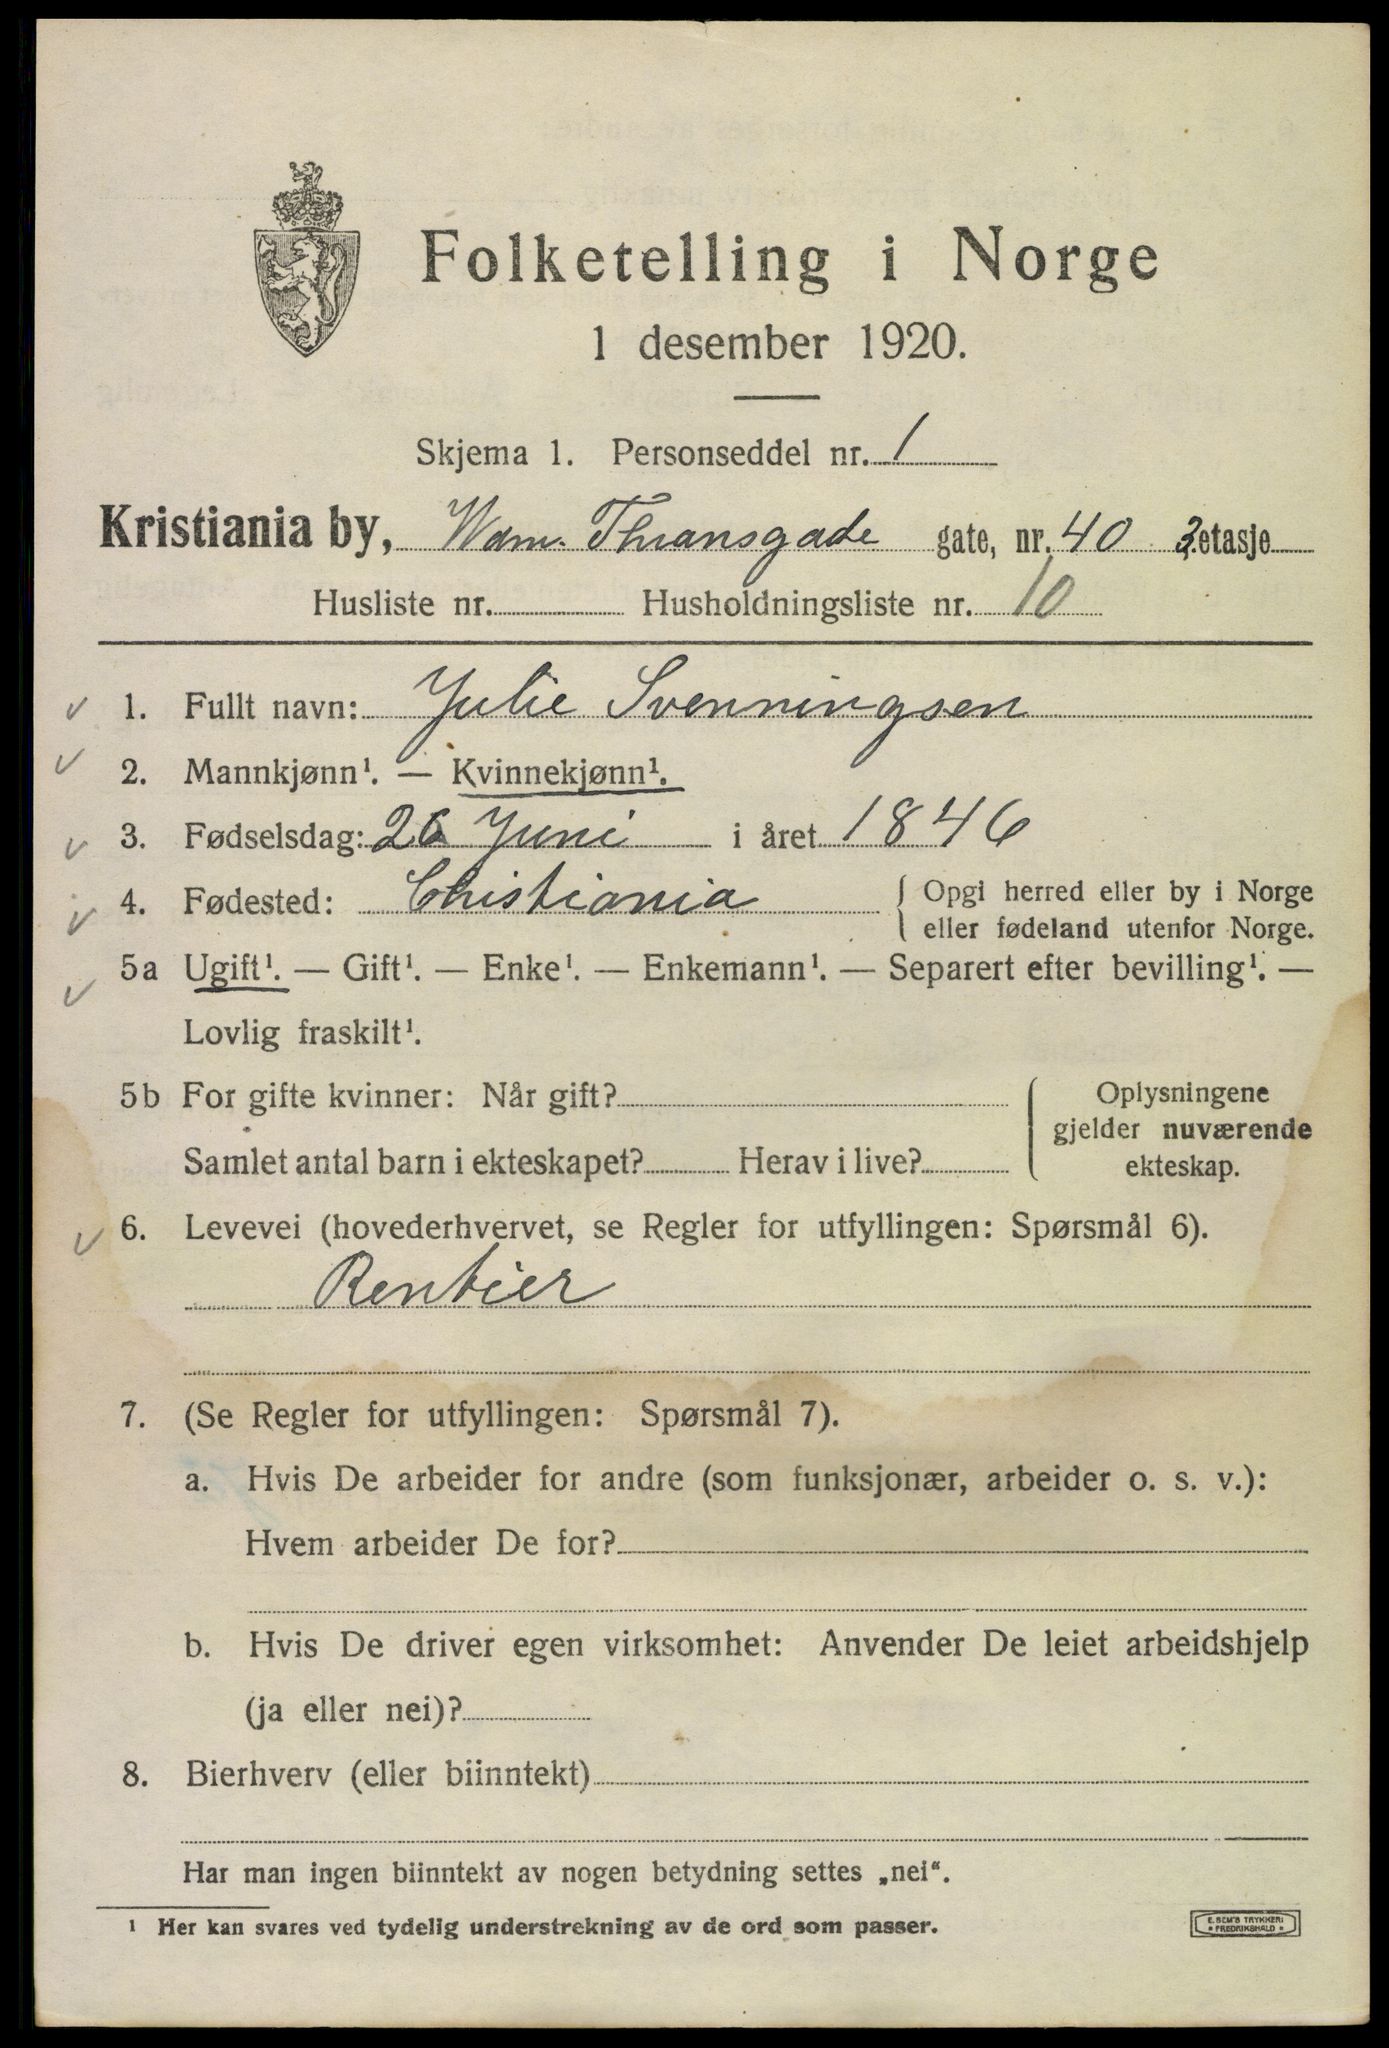 Folketelling i Norge
1 desember 1920.
Skjema 1. Personseddel nr. 1
Kristiania by, Wdm. Thransgade gate, nr. 40 3 etasje
Husliste nr. Husholdningsliste nr. 10
1. Fullt navn: Julie Svenningsen
2. Mannkjønn¹. — Kvinnekjønn¹.
3. Fødselsdag: 26 Juni i året 1846
4. Fødested: Christiania { Opgi herred eller by i Norge
eller fødeland utenfor Norge.
5a Ugift¹. — Gift¹. — Enke¹. — Enkemann¹. — Separert efter bevilling¹. —
Lovlig fraskilt¹.
5b For gifte kvinner: Når gift? { Oplysningene
gjelder nuværende
Samlet antal barn i ekteskapet? Herav i live? ekteskap.
6. Levevei (hovederhvervet, se Regler for utfyllingen: Spørsmål 6).
Rentier
7. (Se Regler for utfyllingen: Spørsmål 7).
a. Hvis De arbeider for andre (som funksjonær, arbeider o. s. v.):
Hvem arbeider De for?
b. Hvis De driver egen virksomhet: Anvender De leiet arbeidshjelp
(ja eller nei)?
8. Bierhverv (eller biinntekt)
Har man ingen biinntekt av nogen betydning settes „nei“.
¹ Her kan svares ved tydelig understrekning av de ord som passer.
E. SEM'S TRYKKERI
• FREDRIKSHALD •